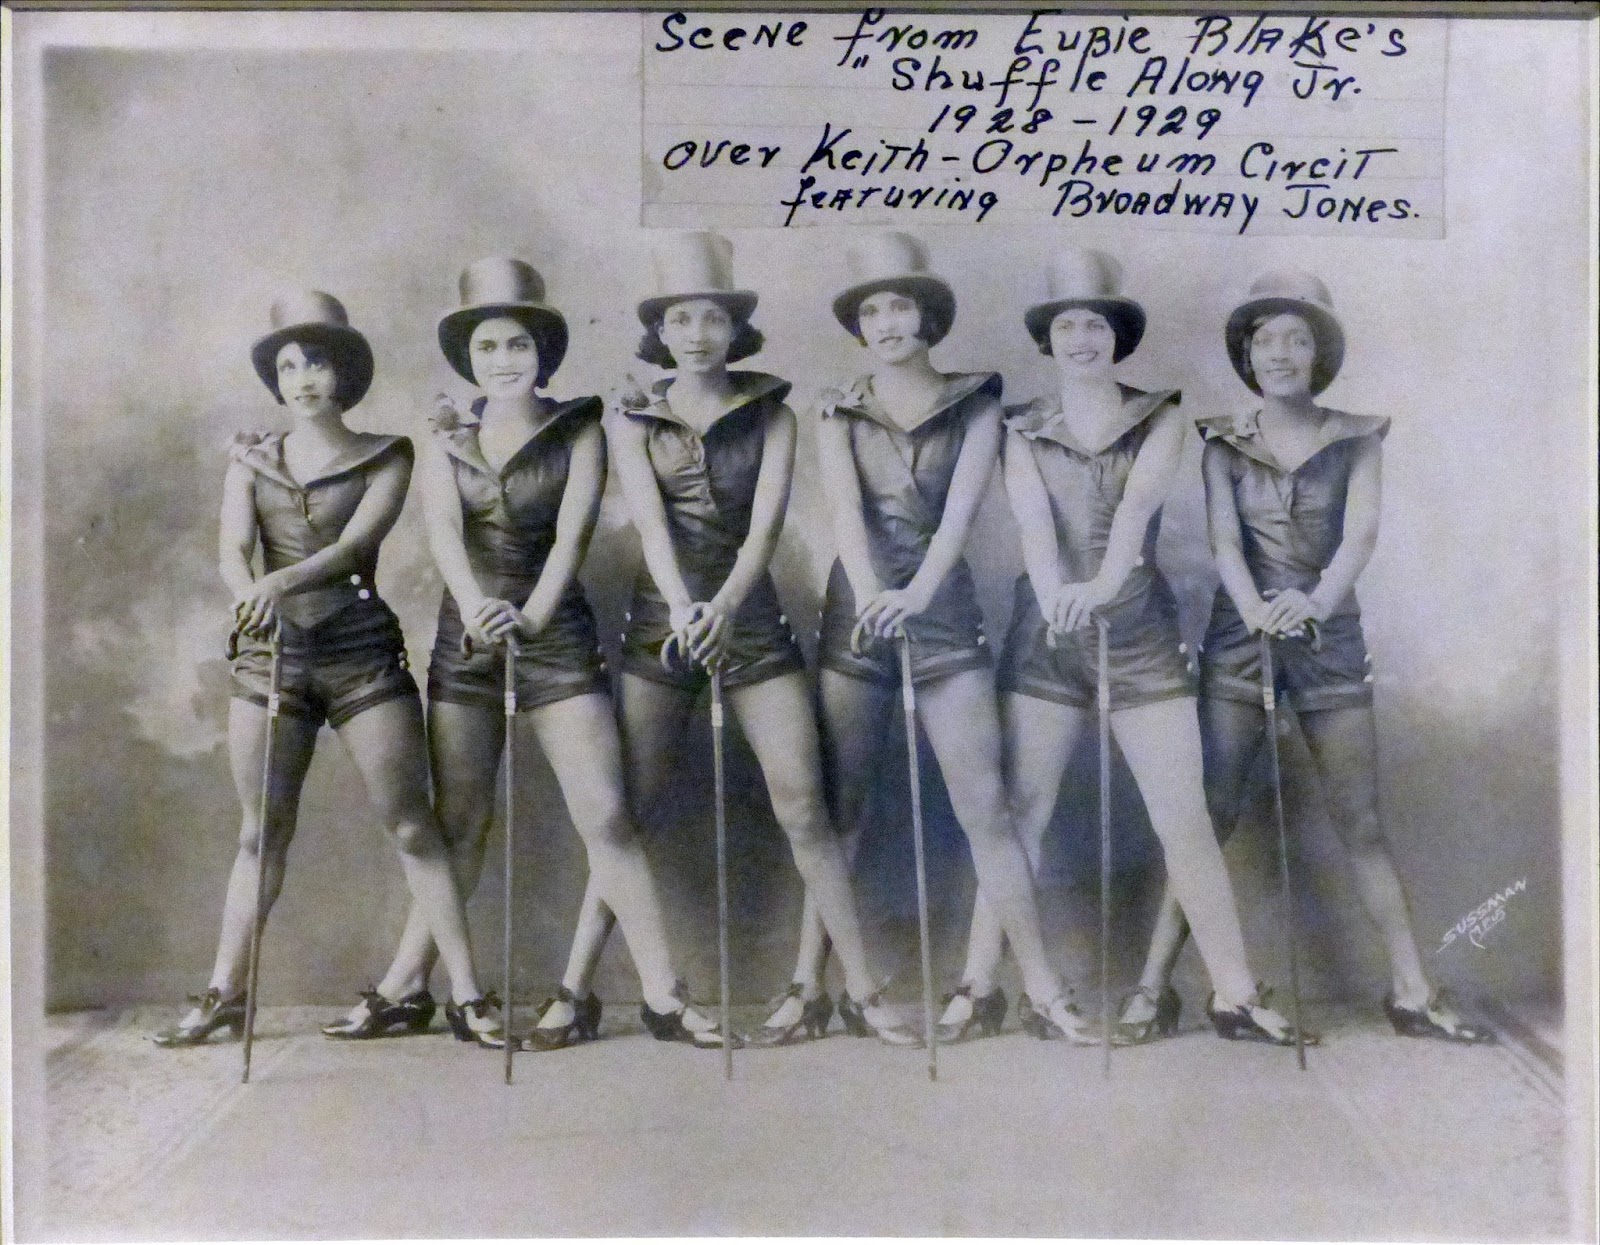 Scene from Eubie Blake's
"Shuffle Along Jr.
1928-1929
over Keith-Orpheum Circit
featuring Broadway Jones.
SUSSMAN
MPLS